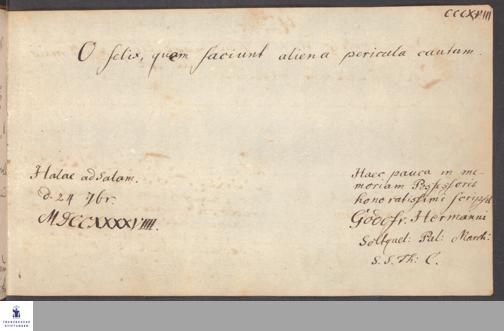 CCCXVIII
O felix, quem faciunt aliena pericula cautum.
Halae ad Salam.
d. 24 7br.
MDCCXXXXVIIII.
Haec pauca in me-
moriam Possessoris
honoratissimi scripsit
Godofr. Hermanni
Soltquel: Pal: March:
S. S. Th: C.
FRANCKESCHE
STIFTUNGEN